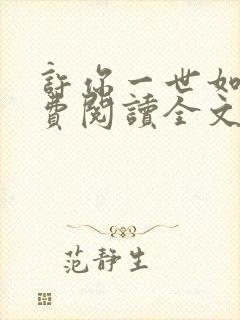 許你一世如
費閱讀全文
范靜生